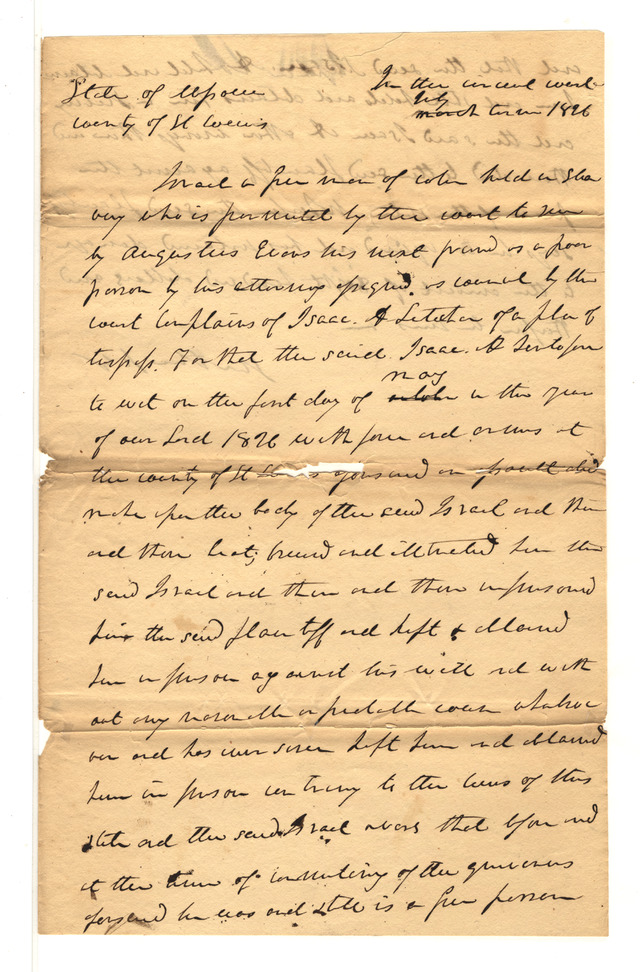 State of Missouri In the circuit court
county of St Louis July march term 1826
Israel a free man of color held in sla
very who is permitted by the court to sue
by Augustus Evans his next friend as a poor
person by his attorney assigned as counsel by the
court complains of Isaac. A Letcher of a plea of
trespass. For that the said. Isaac. A heretofore
may
to wit on the first day of in the year
of our Lord 1826 with force and arms at
the county of St Louis aforesaid an assault did
make upon the body of the said Israel and then
and there beat, bruised and illtreated him the
said Israel and then and there imprisoned
him the said plaintiff and kept & detained
him in prison against his will and with
out any reasonable or probable cause whatsoe
ver and has ever since kept him and detained
him in prison contrary to the laws of this
state and the said Israel avers that before and
at the time of committing of the grievances
aforesaid he was and still is a free person